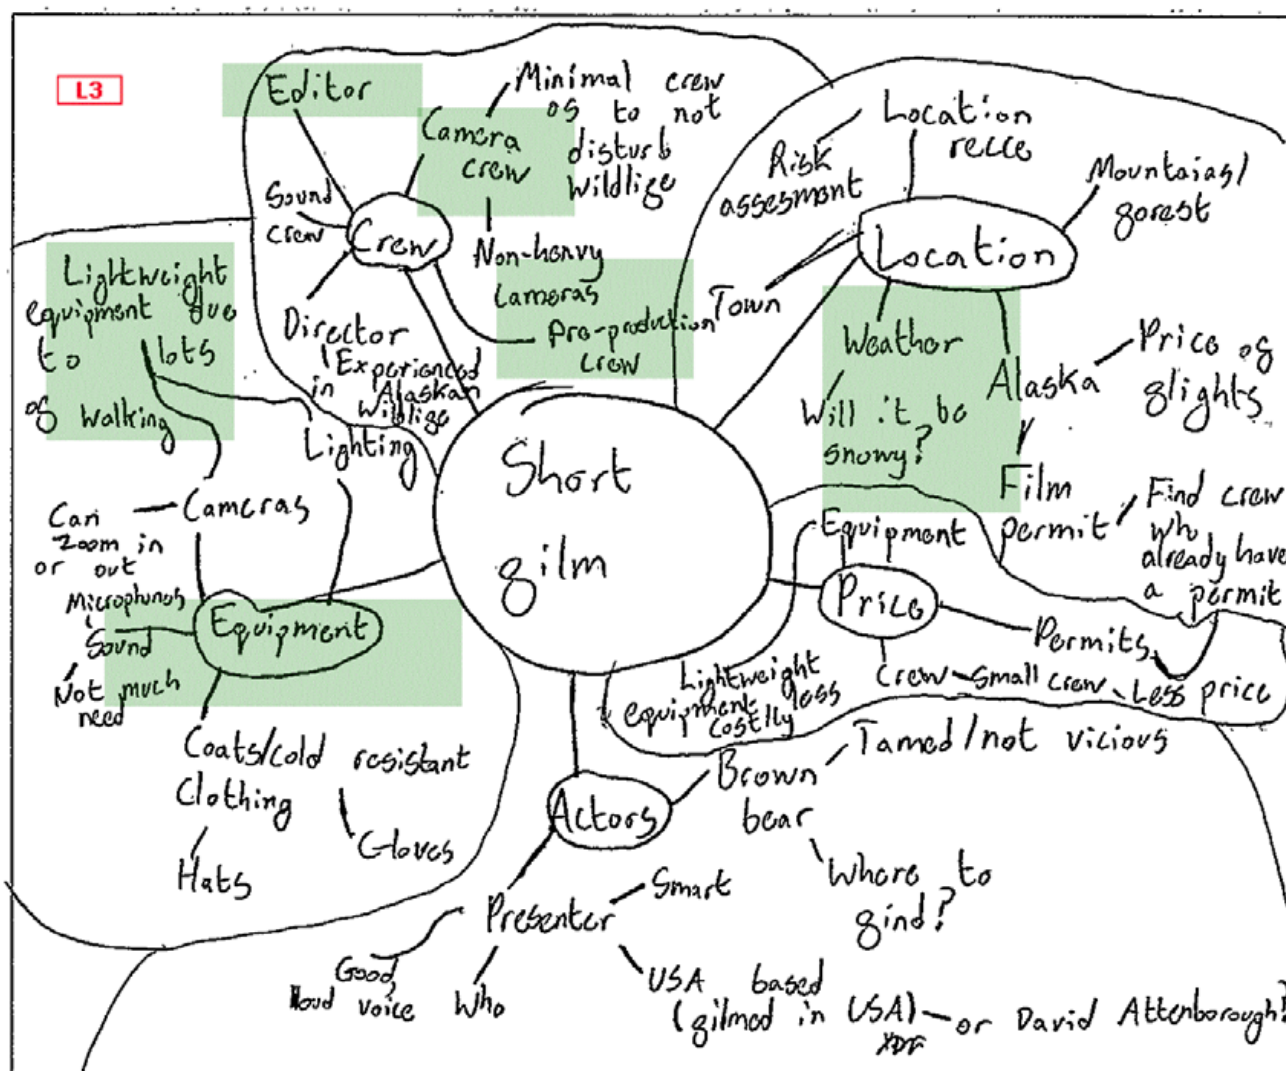 L3
Editor
Camera
crew
Minimal crew
as to not
disturb
wildlife
Sound
crew
Crew
Non-heavy
cameras
Pre-production
crew
Director
Experienced
in Alaskan
Wildlife
Location
recce
Risk
assesment
Mountains/
forest
Location
Town
Weather
Will it be
snowy?
Alaska
Price of
flights
Film
permit
Find crew
who
already have
a permit
Lightweight
equipment due
to lots
of walking
Lighting
Cameras
Can
zoom in
or out
Microphones
Sound
Not much
need
Equipment
Coats/cold resistant
Clothing
Hats
Gloves
Short
film
Equipment
Price
Permits
Crew - small crew - Less price
Lightweight
equipment - less
costly
Actors
Brown
bear
Tamed/not vicious
Where to
find?
Presenter
Smart
Good
loud voice
Who
USA based
(filmed in USA) - or David Attenborough?